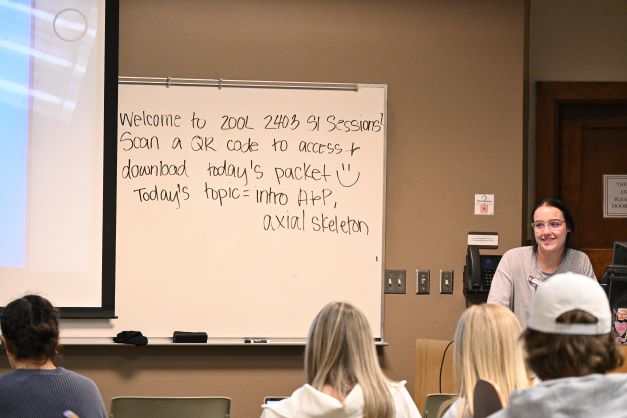 Welcome to ZOOL 2403 SI Sessions!
Scan a QR code to access +
download today's packet :)
Today's topic = intro A+P,
axial skeleton